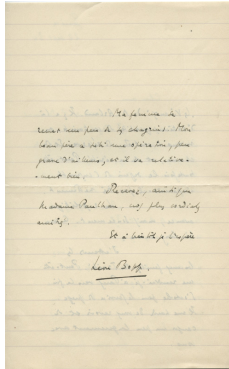 Ma femme
vient
père a subi une opération, peu
grave d'ailleurs, et il va relative-
ment bien.
Recevez, ainsi que
Madame Paulhan, nos plus cordiales
amitiés.
Et à bientôt j'espère
Léon Bopp